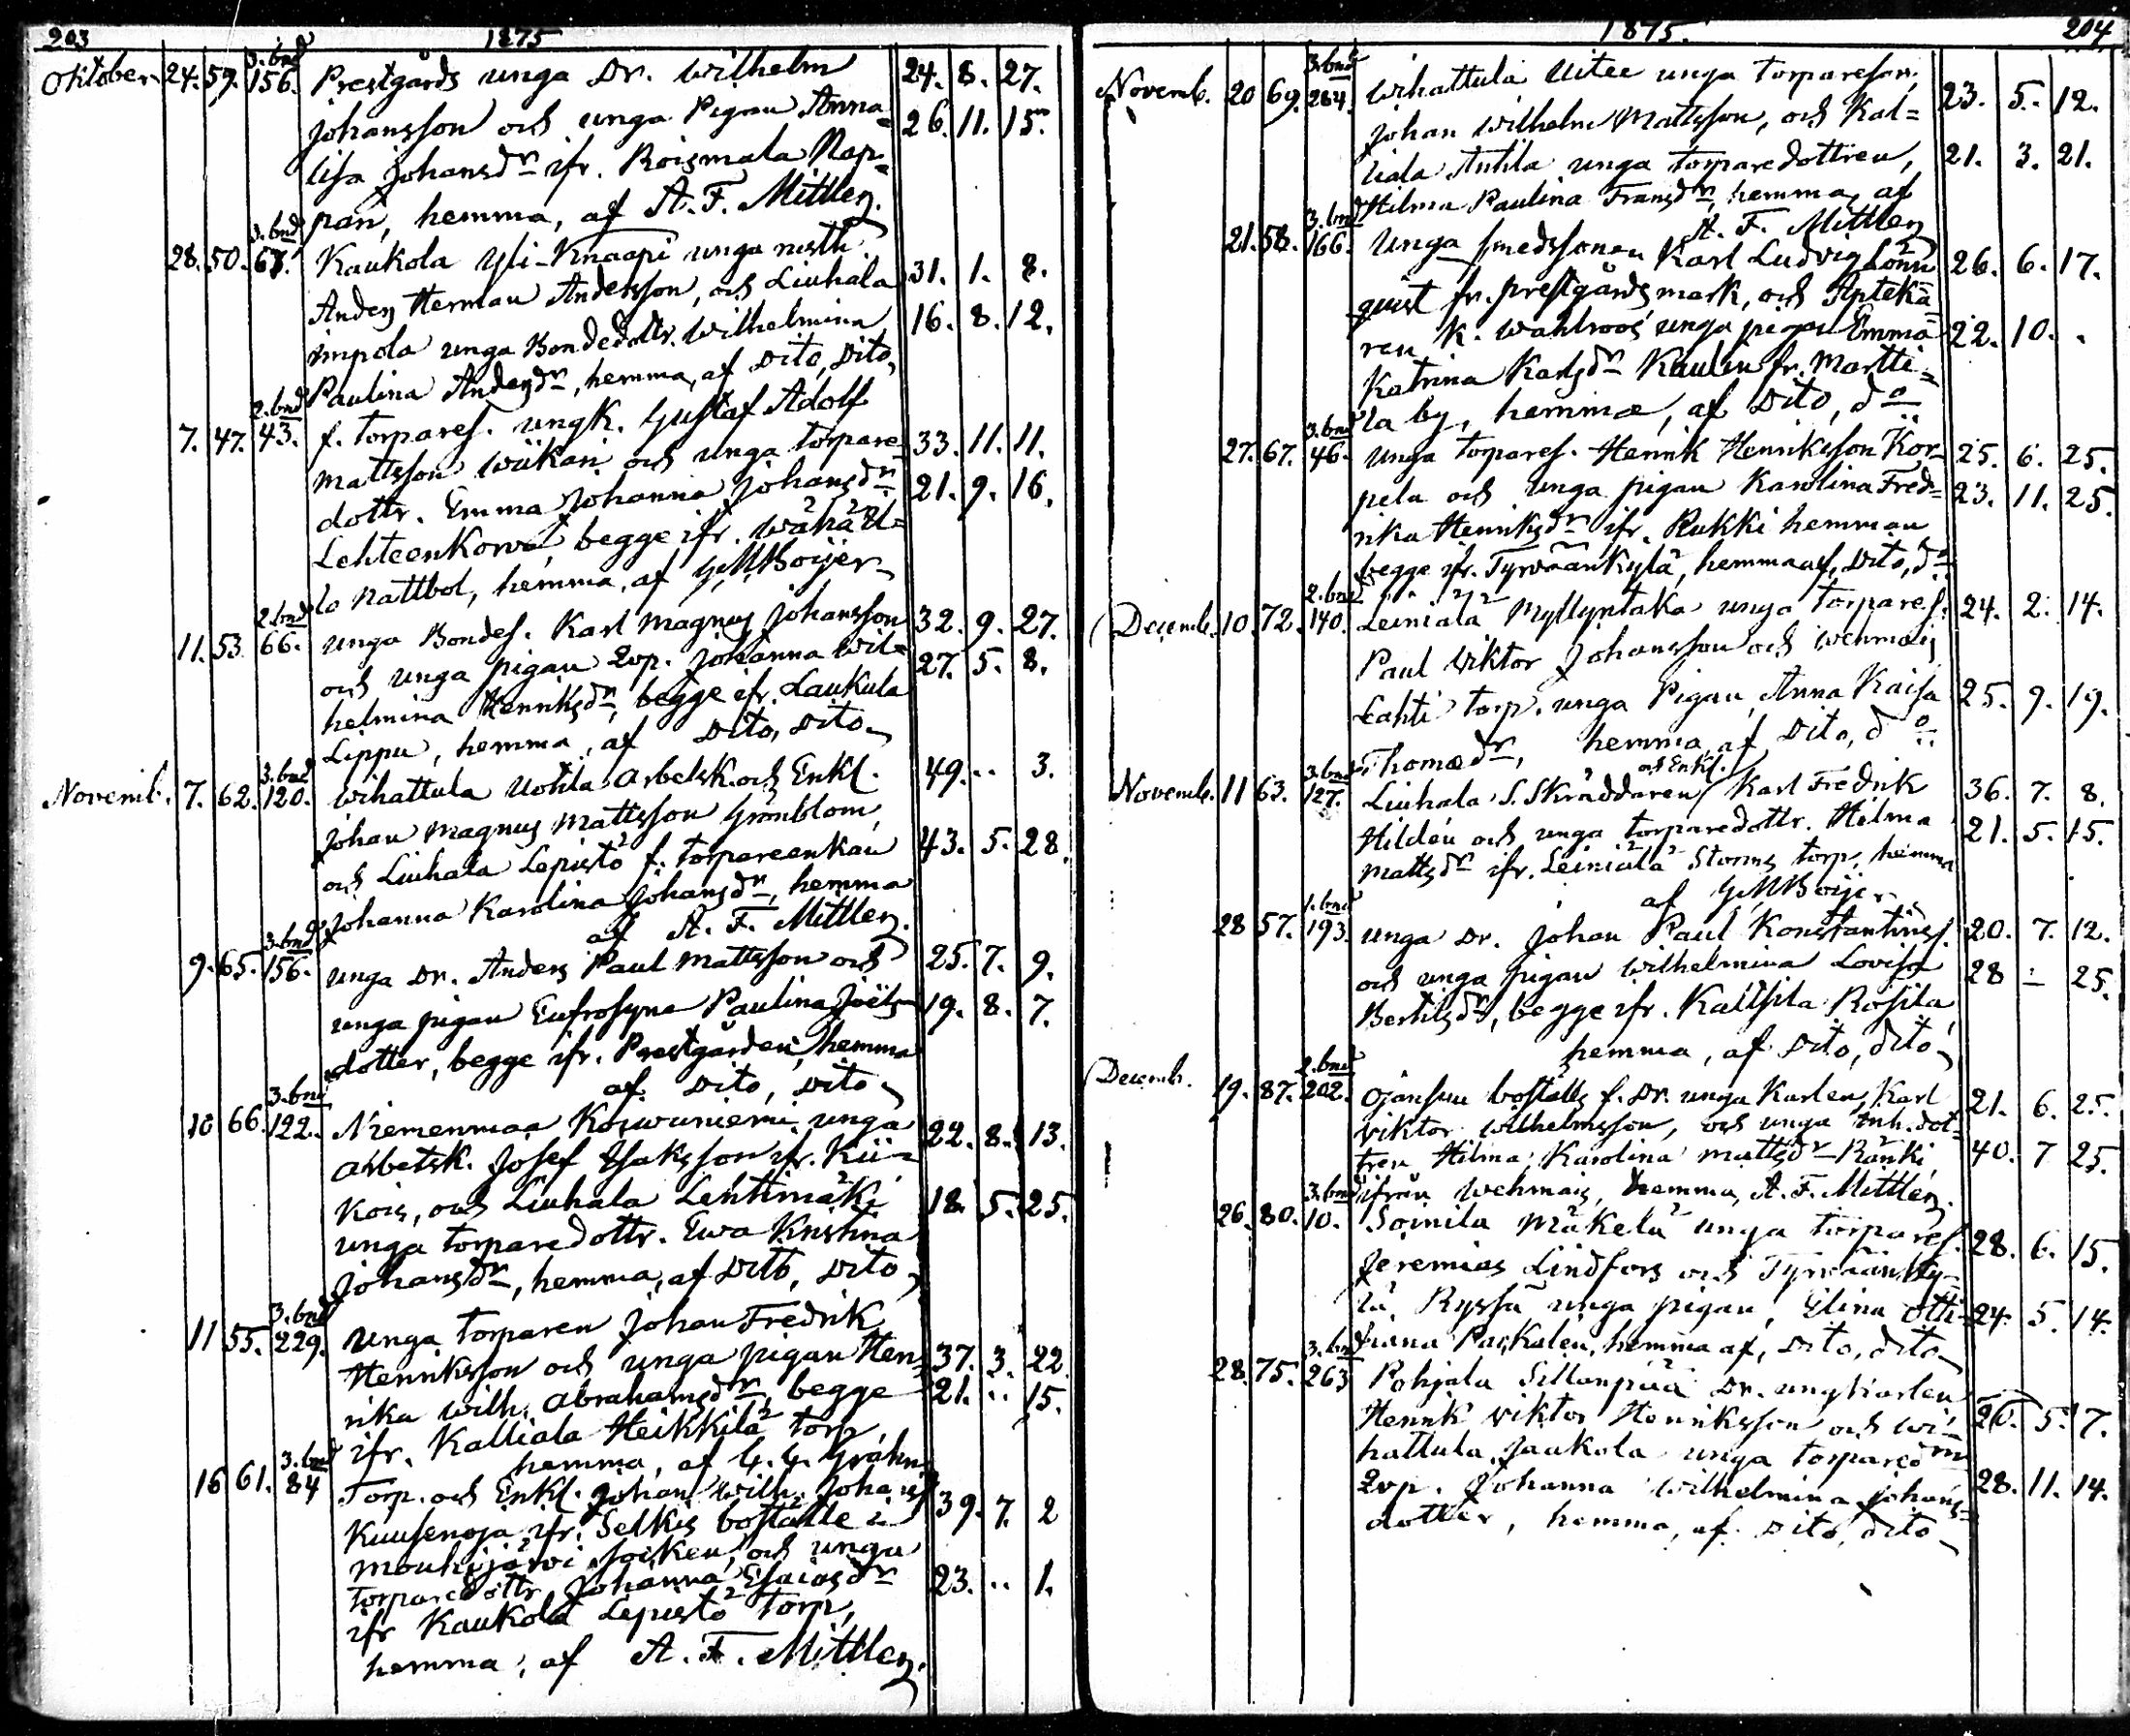 203 1875
3. bnd
Oktober 24. 59. 156. Prestgårds unga Dr. Wilhelm 24. 8. 27.
Johansson och unga Pigan Anna= 26. 11. 15.
lisa Johansdr ifr. Roismala Nap=
pari, hemma, af A. F. Mittler.
3. bnd
28. 50. 67. Kaukola Yli-Knaapi unga
Anders Herman Andersson, och Liuhala 31. 1. 8.
Simpola unga Bondedottr. Wilhelmina 16. 8. 12.
Paulina Andersdr, hemma, af Dito, Dito,
2. bnd
7. 47. 43. f. torpares. ungk. Gustaf Adolf
Mattsson Wiikari och unga torpare= 33. 11. 11.
dottr. Emma Johanna Johansdr 21. 9. 16.
Lehteenkorwa, begge ifr.
lo Nattbol, hemma, af
2. bnd
11. 53 66. unga Bondes. Karl Magnus Johansson 32. 9. 27.
och unga pigan Qvp. Johanna Wil= 27. 5. 8.
helmina Henriksdr, begge ifr. Laukula
Lippu, hemma, af Dito, Dito
3. bnd
Novemb. 7. 62. 120. Wihattula Uotila arbetsk. och Enkl. 49. .. 3.
Johan Magnus Mattsson Grönblom,
och Liuhala Lepistö f. torpareenkan 43. 5. 28.
Johanna Karolina Johansdr, hemma
af A. F. Mittler.
3. bnd
9. 65. 156. unga Dr. Anders Paul Mattsson och 25. 7. 9.
unga pigan Eufrosyna Paulina Joëls= 19. 8. 7.
dotter, begge ifr. Prestgården, hemma
af Dito, Dito
3. bnd
10 66. 122. Niemenmaa Koiwuniemi unga 22. 8. 13.
arbetsk. Josef Isaksson ifr. Kii=
kois, och Liuhala Lehtimäki 18. 5. 25.
unga torparedottr. Ewa Kristina
Johansdr, hemma, af Dito, Dito,
3. bnd
11 55. 229. unga torparen Johan Fredrik
Henriksson och unga pigan Hen= 37. 3. 22
rika Wilh. Abrahamsdr, begge 21. .. 15.
ifr. Kalliala Heikkilä torp
hemma, af G. G. Grahn
3. bnd
16 61. 84 Torp. och Enkl. Johan Wilh. Johanss.
Kuusenoja ifr. Selkis boställe i 39. 7. 2
Mouhijärvi socken, och unga
torparedottr. Johanna Esaiasdr 23. .. 1.
ifr Kaukola Lepistö torp,
hemma, af A. F. Mittler.
1875. 204
3. bnd
Novemb. 20 69. 284. Wihattula Uitee unga torpareson, 23. 5. 12.
Johan Wilhelm Mattsson, och Kal=
liala Anttila unga torparedottren, 21. 3. 21.
Hilma Paulina Fransdr, hemma, af
A. F. Mittler
3. bnd
21. 58. 166. unga smedssonen Karl Ludvig Lönn 26. 6. 17.
quist fr. prestgårds mark, och Apteka=
ren K. Wahlroos unga pigan Emma 22. 10. .
Katrina Karlsdr Kaulin fr. Martti=
la by, hemma, af Dito, do
3. bnd
27. 67. 46. unga torpares. Henrik Henriksson Kor= 25. 6. 25.
pela och unga pigan Karolina Fred= 23. 11. 25.
rika Henriksdr ifr. Rukki hemman
begge ifr. Tyrväänkylä, hemma af, Dito, do
2. bnd
Decemb. 10. 72. 140. Leiniälä Myllyntaka unga torpares. 24. 2. 14.
Paul Viktor Johansson och Wehmais
Lahti torp. unga Pigan, Anna Kaisa 25. 9. 19.
Thomædr, hemma, af Dito, do
3. bnd och Enkl.
Novemb. 11 63. 127. Liuhala S. Skräddaren Karl Fredrik 36. 7. 8.
Hildén och unga torparedottr. Hilma 21. 5. 15.
Mattsdr ifr. Leiniälä Storms torp, hemma
af
1. bnd
28 57. 193. unga Dr. Johan Paul Konstantins. 20. 7. 12.
och unga pigan Wilhelmina Lovisa 28 – 25.
Bertilsdr, begge ifr. Kaltsila Rosila,
hemma, af Dito, dito
2. bnd
Decemb. 19. 87. 202. Ojansuu boställs f. Dr. unga Karlen, Karl 21. 6. 25.
Viktor Wilhelmsson, och unga Inh. dot=
tren Hilma Karolina Mattsdr Ränki, 40. 7 25.
ifrån Wehmais, hemma, A. F. Mittler.
3. bnd
26. 80. 10. Soinila Mäkelä unga torpares. 28. 6. 15.
Jeremias Lindfors och Tyrväänky=
lä, Ryssä unga pigan, Elina Otti= 24. 5. 14.
liana Paskalen, hemma af, Dito, dito
3. bnd
28. 75. 263 Pohjala Sillanpää Dr. ungkarlen
Henrik Viktor Henriksson och Wi= 20. 5. 7.
hattula Jaakola unga torparedrn
Qvp. Johanna Wilhelmina Johans= 28. 11. 14.
dotter, hemma, af Dito, dito